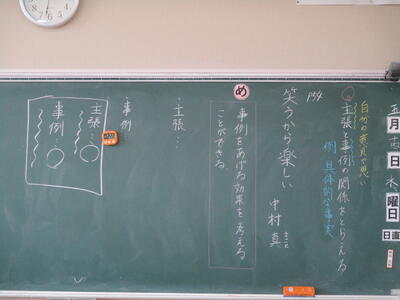 五月壱日木曜日
日直
自分の意見や思い
主張と事例の関係をとらえる
例 具体的な事実
P54
笑うから楽しい
中村 真
まこと
め
事例をあげる効果を考える
ことができる。
主張…
事例
主張…
事例…